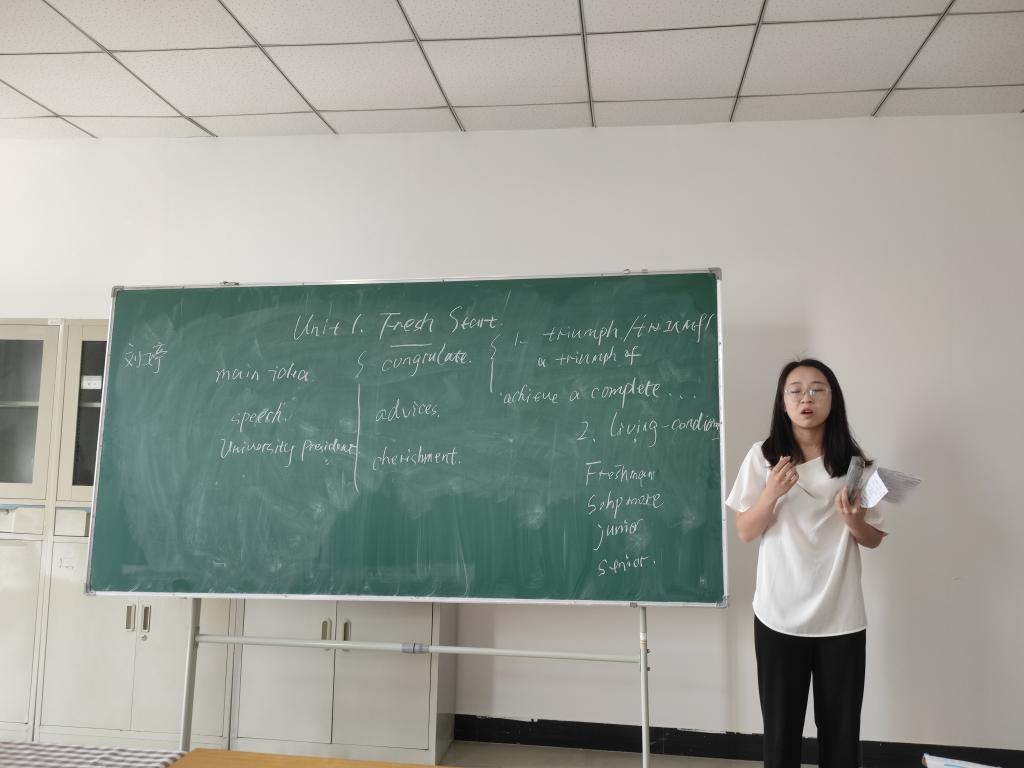 Unit 1. Fresh Start.
刘婷
main idea
speech.
University president
congrulate.
advices.
cherishment.
1. triumph
a triumph of
achieve a complete ...
2. living-condition
Freshman
Sohpmore
junior
senior.